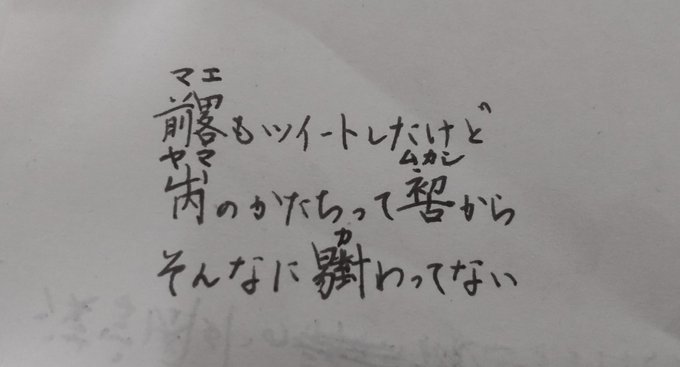 マエ
もツイートしたけど
ヤマ ムカシ
のかたちって から
カ
そんなに わってない